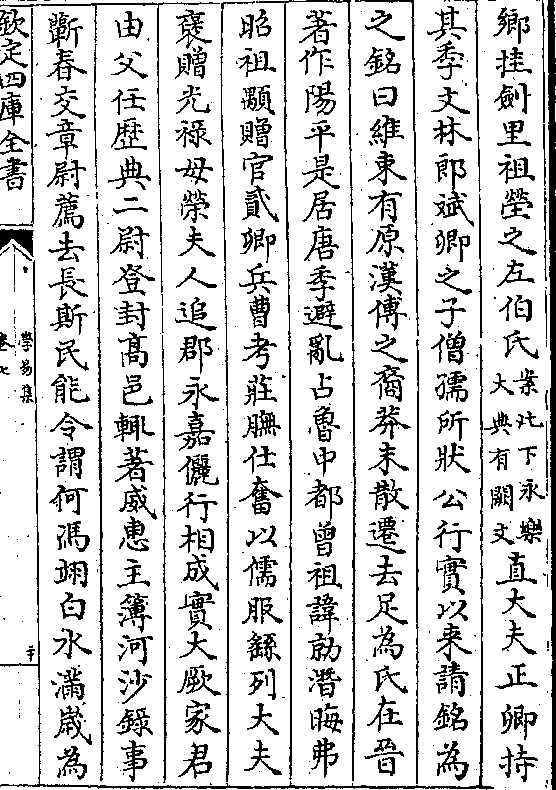 鄉挂劍里祖塋之左伯氏案此下永樂大典有闕文直大夫正卿持
其季文林郎斌卿之子僧孺所狀公行實以来請銘為
之銘曰維東有原漢傅之裔莽末散遷去足為氏在晉
著作陽平是居唐季避亂占魯中都曾祖諱勍潛晦弗
昭祖顯贈官貳卿兵曹考莊膴仕奮以儒服繇列大夫
褒贈光祿母榮夫人追郡永嘉儷行相成實大厥家君
由父任歷典二尉登封高邑輒著威惠主簿河沙錄事
蘄春交章尉薦去長斯民能令謂何馮翊白水滿歲為
欽定四庫全書
學易集
卷七